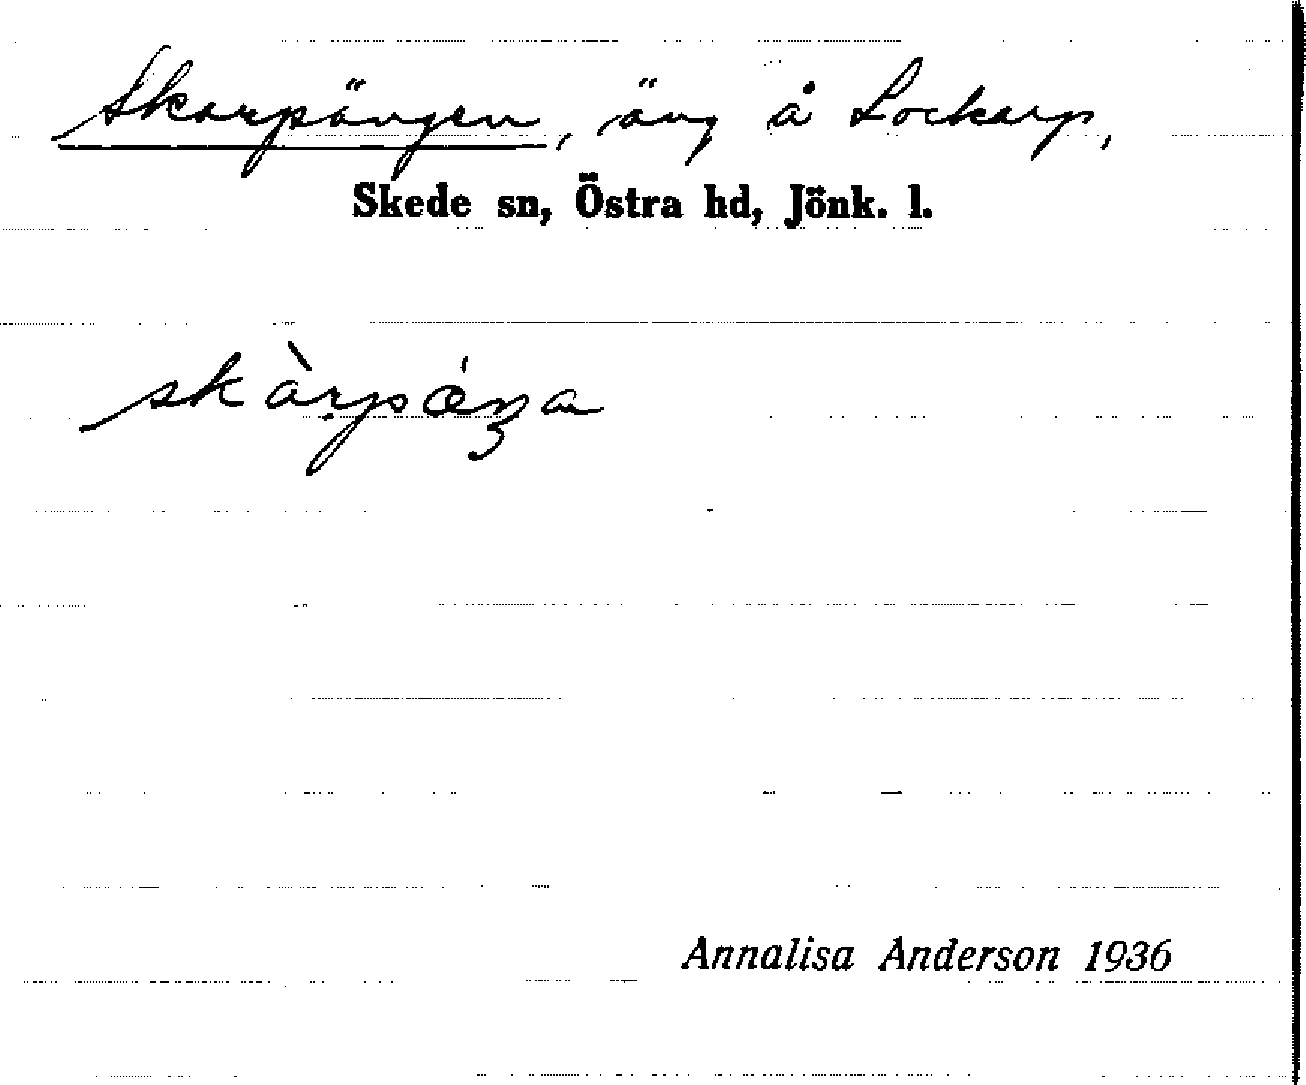 Skarpängen, äng å Lockarp,
Skede sn, Östra hd, Jönk. l.
skàrpǽŋa
Annalisa Anderson 1936